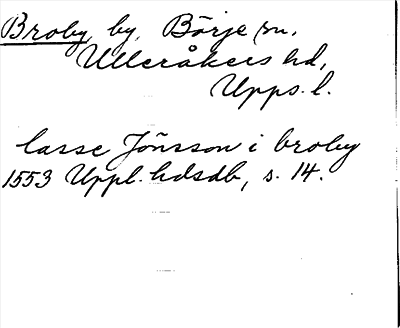 Broby, by, Börje sn,
Ulleråkers hd,
Upps. l.
lasse Jönsson i broby
1553 Uppl. hdsdb, s. 14.